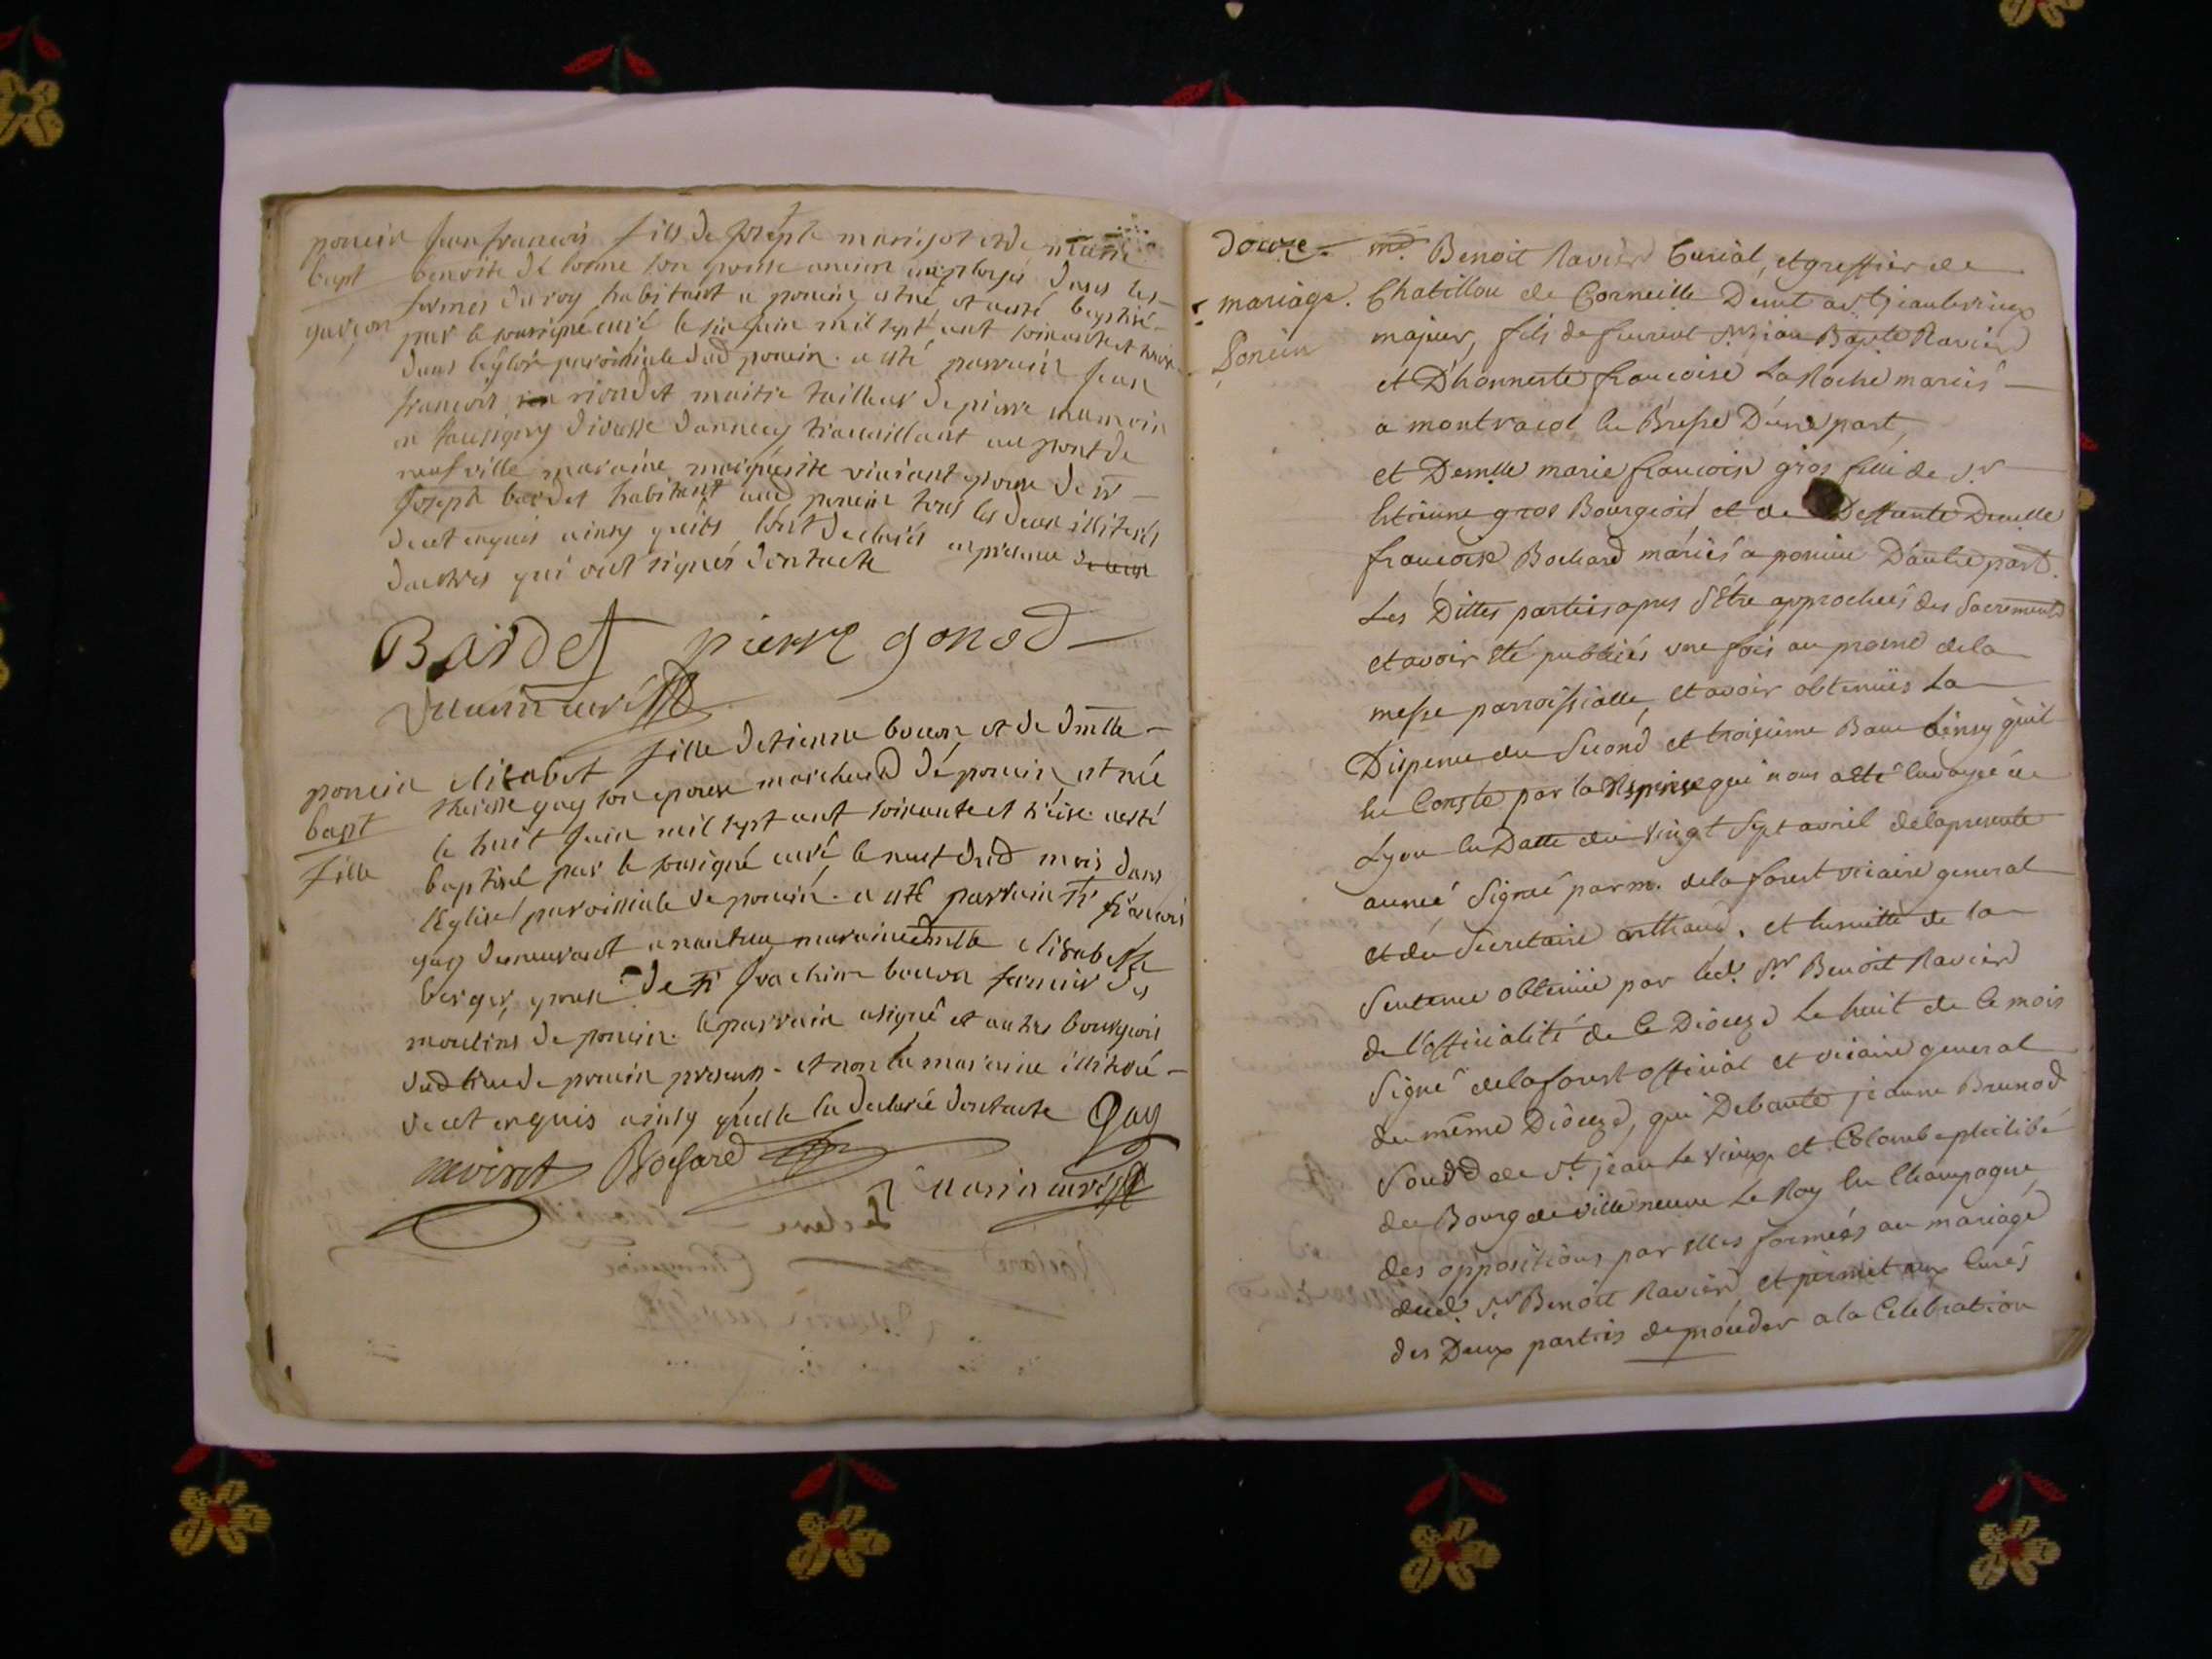 poncin jean francois fils de joseph marijot et de marie
bapt benoite de lorme son epouse ancien employé dans les
garcon fermes du roy habitant a poncin est né et a esté baptisé
par le soussigné curé le six juin mil sept cent soixante et treize
dans l'eglise paroissiale dud poncin. a esté parrain jean
francois riondet maitre tailleur de pierre
en faucigny diocese dannecy travaillant au pont de
neufville maraine marguerite epouse de sr
joseph bardet habitant aud poncin tous les deux illiterés
de ce enquis ainsy quils l'ont declarés en presence
dautres qui ont signés dont acte
Bardet pierre gonod
curé
poncin elisabet fille detienne bocon et de dmlle
bapt therese guy son epouse marchand de poncin est née
fille le huit juin mil sept cent soixante et treize a esté
baptisé par le sousigné curé le neuf dud mois dans
l'Eglise paroissiale de poncin. a esté parrain sr francois
guy demeurant a nantua, maraine dmlle elisabeth
berger, epouse de sr joachim bocon fermier des
moulins de poncin. le parrain a signé et autres bourgeois
dud lieu de poncin presents. et non la maraine illiterée
de ce enquis ainsy quelle la declaré dont acte Guy
Bochard
curé
douze. me. Benoit Ravier Curial, et greffier de
mariage. Chatillon de Corneille Demt a st jean le vieux
Poncin majeur, fils de feu sr jean Bapte Ravier
et D'honneste francoise La Roche mariés
a montracol en Bresse D'une part,
et Demlle marie francoise gros fille de sr
Estienne gros Bourgeois et de Deffunte Demlle
francoise Bochard mariés a poncin D'autre part.
Les Dittes parties apres s'Etre approchées des sacrements
et avoir été publiés une fois au prosne de la
messe parroissialle, et avoir obtenües la
Dispense du second et troisieme Banc Ainsy qu'il
en Conste par la Dispense qui nous a été Envoyée de
Lyon en Datte du vingt sept avril de la presente
année signé par m. de la forest vicaire general
et du secretaire arthaud. et ensuitte de la
sentence obtenüe par led. sr Benoit Ravier
de l'officialité de ce Diocese Le huit de ce mois
signé de la forest official et vicaire general
du même Diocese, qui Deboute jeanne Brunod
de st. jean le vieux. et Colombe philibé
du Bourg de ville neuve Le Roy en Champagne
des oppositions par elles formées au mariage
dud. sr Benoit Ravier et permet aux Curés
des Deux parties de proceder a la Celebration